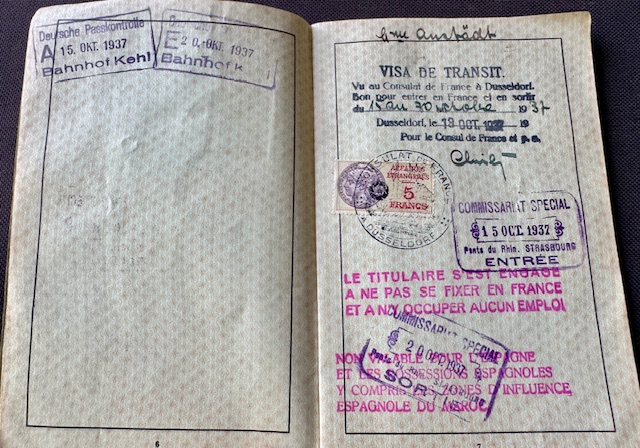 Deutsche Passkontrolle
A 15. OKT. 1937
Bahnhof Kehl
E 20.-OKT. 1937
Bahnhof K
6
VISA DE TRANSIT.
Vu au Consulat de France à Dusseldorf.
Bon pour entrer en France et en sortir
du 15 au 30 octobre 1937
Dusseldorf, le 13 OCT. 1937 19
Pour le Consul de France et p. a.
CONSULAT DE FRANCE
A DUSSELDORF
AFFAIRES
ETRANGÈRES
5
FRANCS
COMMISSARIAT SPECIAL
15 OCT. 1937
Ponts du Rhin, STRASBOURG
ENTRÉE
LE TITULAIRE S'EST ENGAGE
A NE PAS SE FIXER EN FRANCE
ET A N'Y OCCUPER AUCUN EMPLOI
COMMISSARIAT SPECIAL
20 OCT. 1937
Ponts du Rhin, STRASBOURG
SORTIE
NON VALABLE POUR L'ESPAGNE
ET LES POSSESSIONS ESPAGNOLES
Y COMPRIS LES ZONES D'INFLUENCE
ESPAGNOLE DU MAROC
7